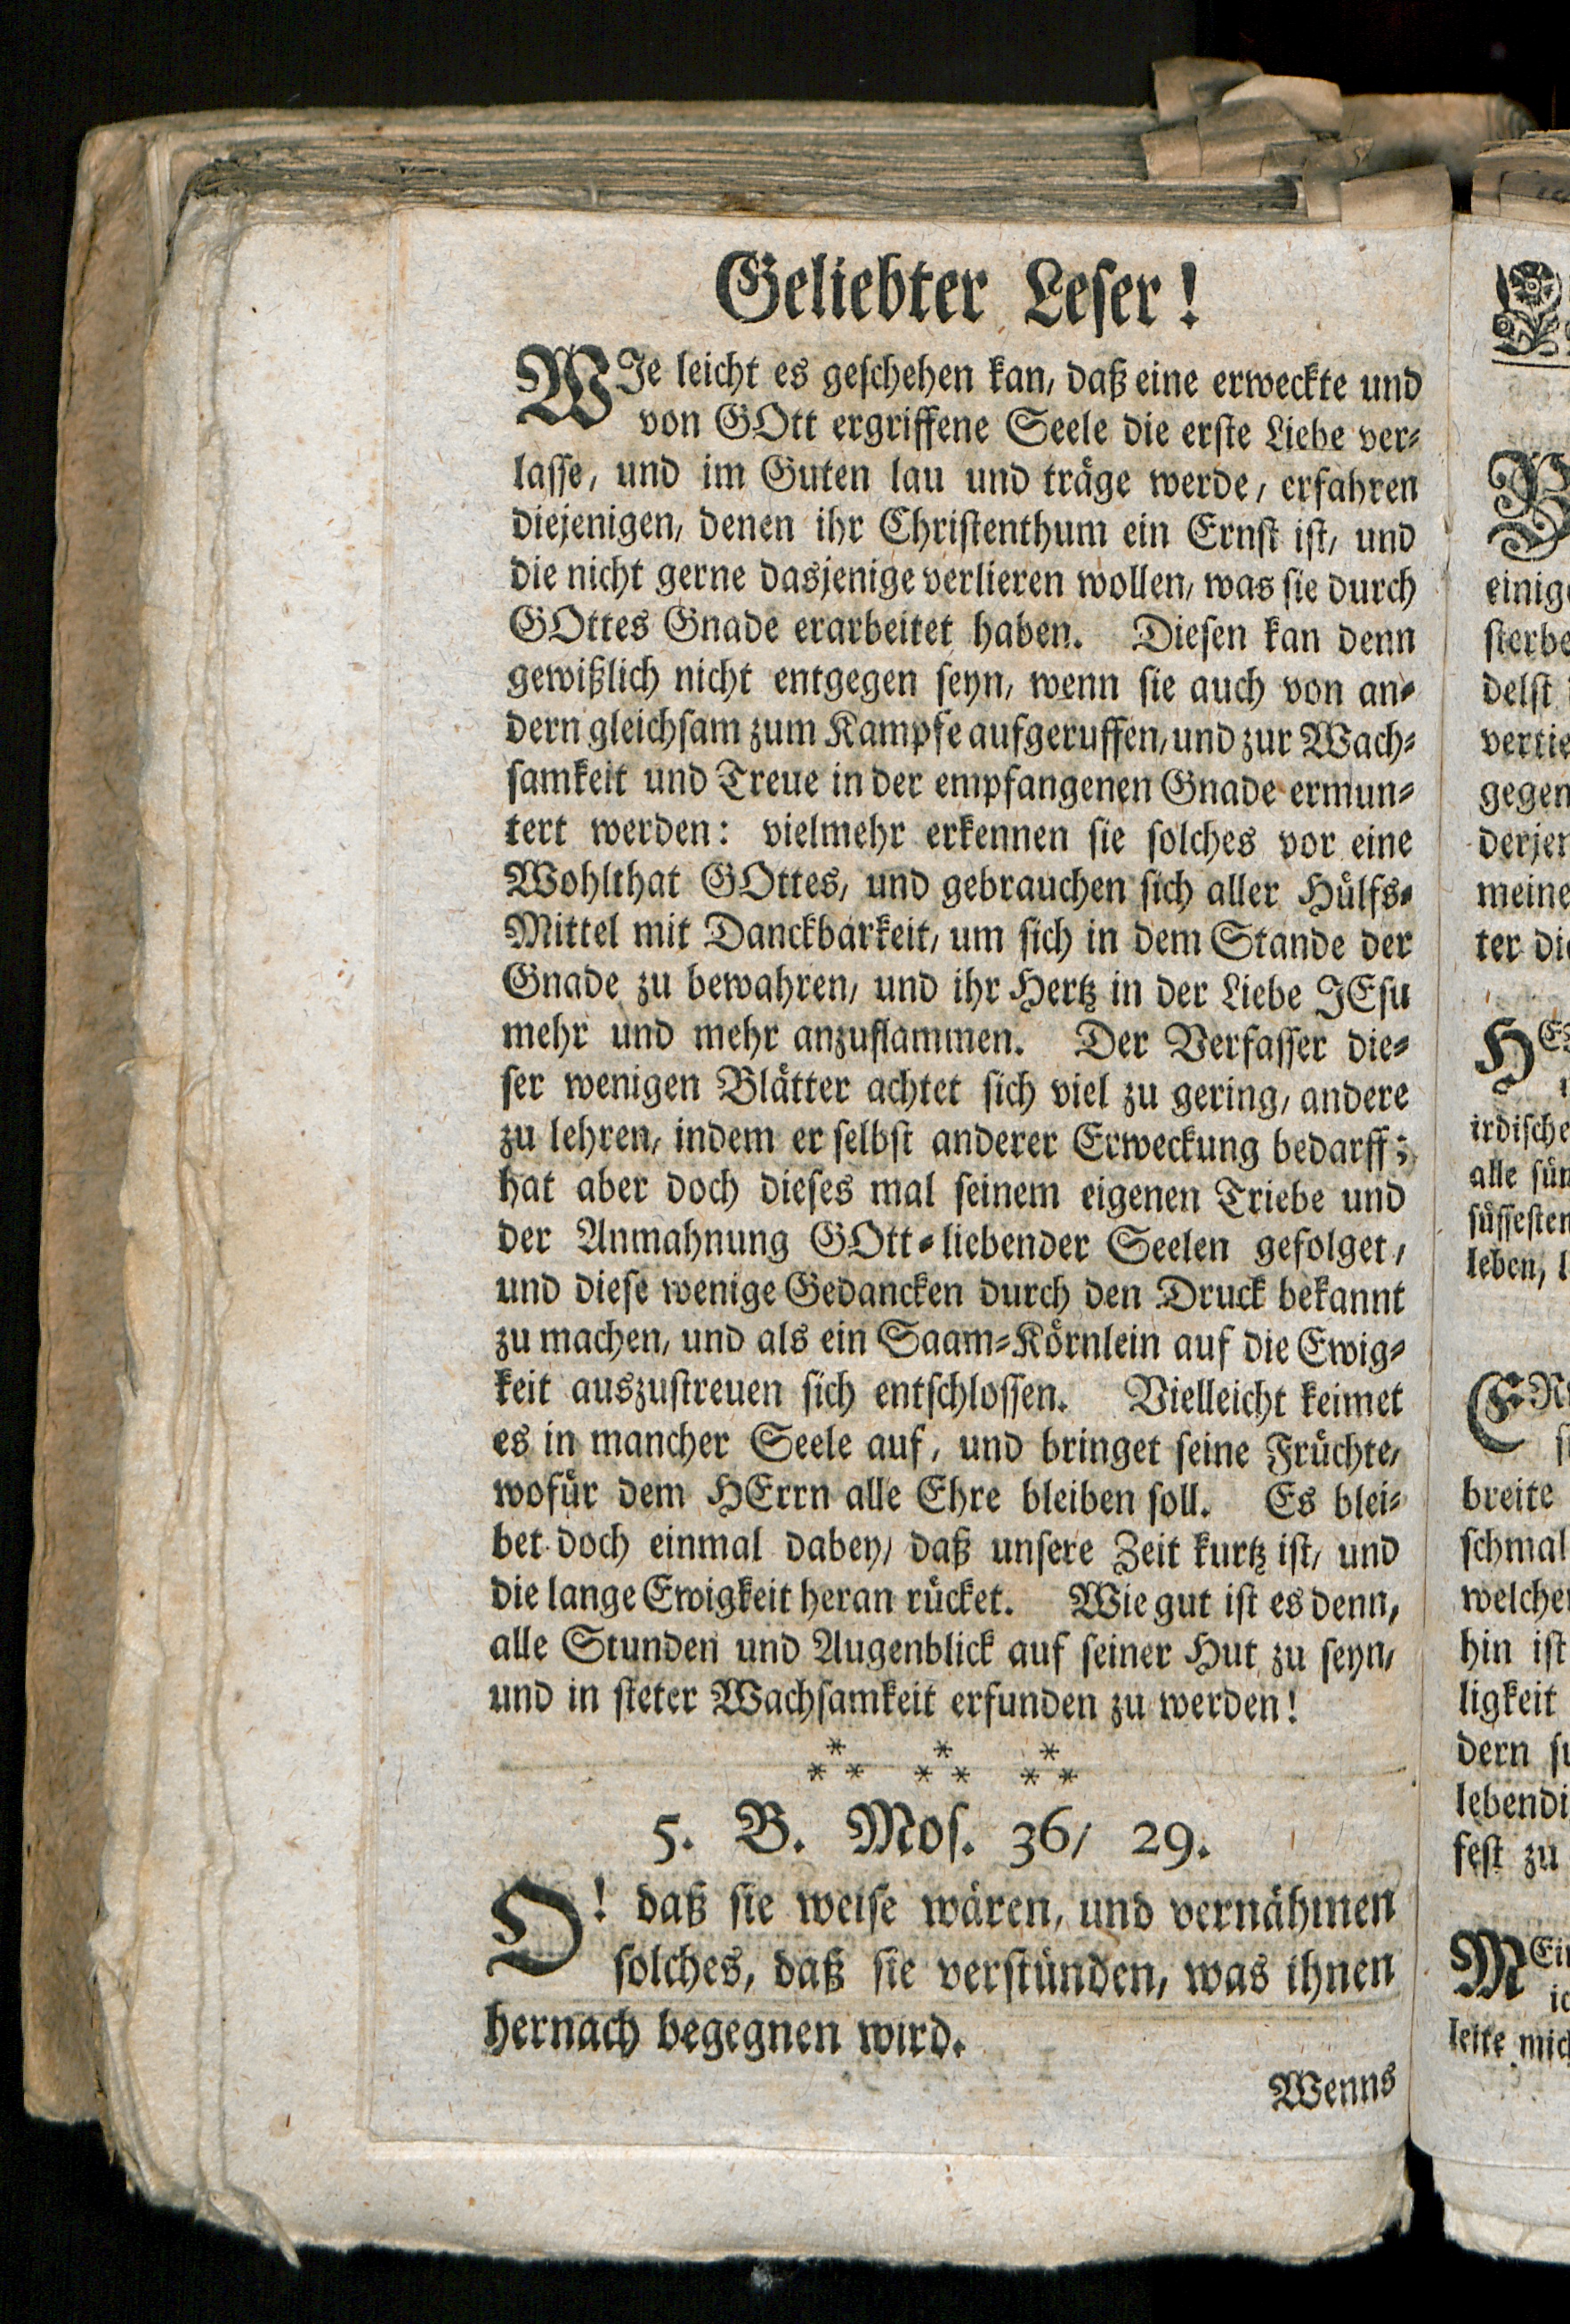 Geliebter Leser!
WIe leicht es geschehen kan, daß eine erweckte und
von GOtt ergriffene Seele die erste Liebe ver-
lasse, und im Guten lau und träge werde, erfahren
diejenigen, denen ihr Christenthum ein Ernst ist, und
die nicht gerne dasjenige verlieren wollen, was sie durch
GOttes Gnade erarbeitet haben. Diesen kan denn
gewißlich nicht entgegen seyn, wenn sie auch von an-
dern gleichsam zum Kampfe aufgeruffen, und zur Wach-
samkeit und Treue in der empfangenen Gnade ermun-
tert werden: vielmehr erkennen sie solches vor eine
Wohlthat GOttes, und gebrauchen sich aller Hülfs-
Mittel mit Danckbarkeit, um sich in dem Stande der
Gnade zu bewahren, und ihr Hertz in der Liebe JEsu
mehr und mehr anzuflammen. Der Verfasser die-
ser wenigen Blätter achtet sich viel zu gering, andere
zu lehren, indem er selbst anderer Erweckung bedarff;
hat aber doch dieses mal seinem eigenen Triebe und
der Anmahnung GOtt-liebender Seelen gefolget,
und diese wenige Gedancken durch den Druck bekannt
zu machen, und als ein Saam-Körnlein auf die Ewig-
keit auszustreuen sich entschlossen. Vielleicht keimet
es in mancher Seele auf, und bringet seine Früchte,
wofür dem HErrn alle Ehre bleiben soll. Es blei-
bet doch einmal dabey, daß unsere Zeit kurtz ist, und
die lange Ewigkeit heran rücket. Wie gut ist es denn,
alle Stunden und Augenblick auf seiner Hut zu seyn,
und in steter Wachsamkeit erfunden zu werden!
* * *
** ** **
5. B. Mos. 36/ 29.
O! daß sie weise wären, und vernähmen
solches, daß sie verstünden, was ihnen
hernach begegnen wird.
Wenns
einig
sterbe
delst
vertie
gegen
derjen
meine
ter die
irdische
alle sün
süssesten
leben, l
breite
schmal
welche
hin ist
ligkeit
dern su
lebendi
fest zu
MEin
ic
leite mich